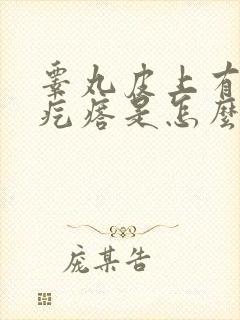 睾丸皮上有
疙瘩是怎麼
庞某告